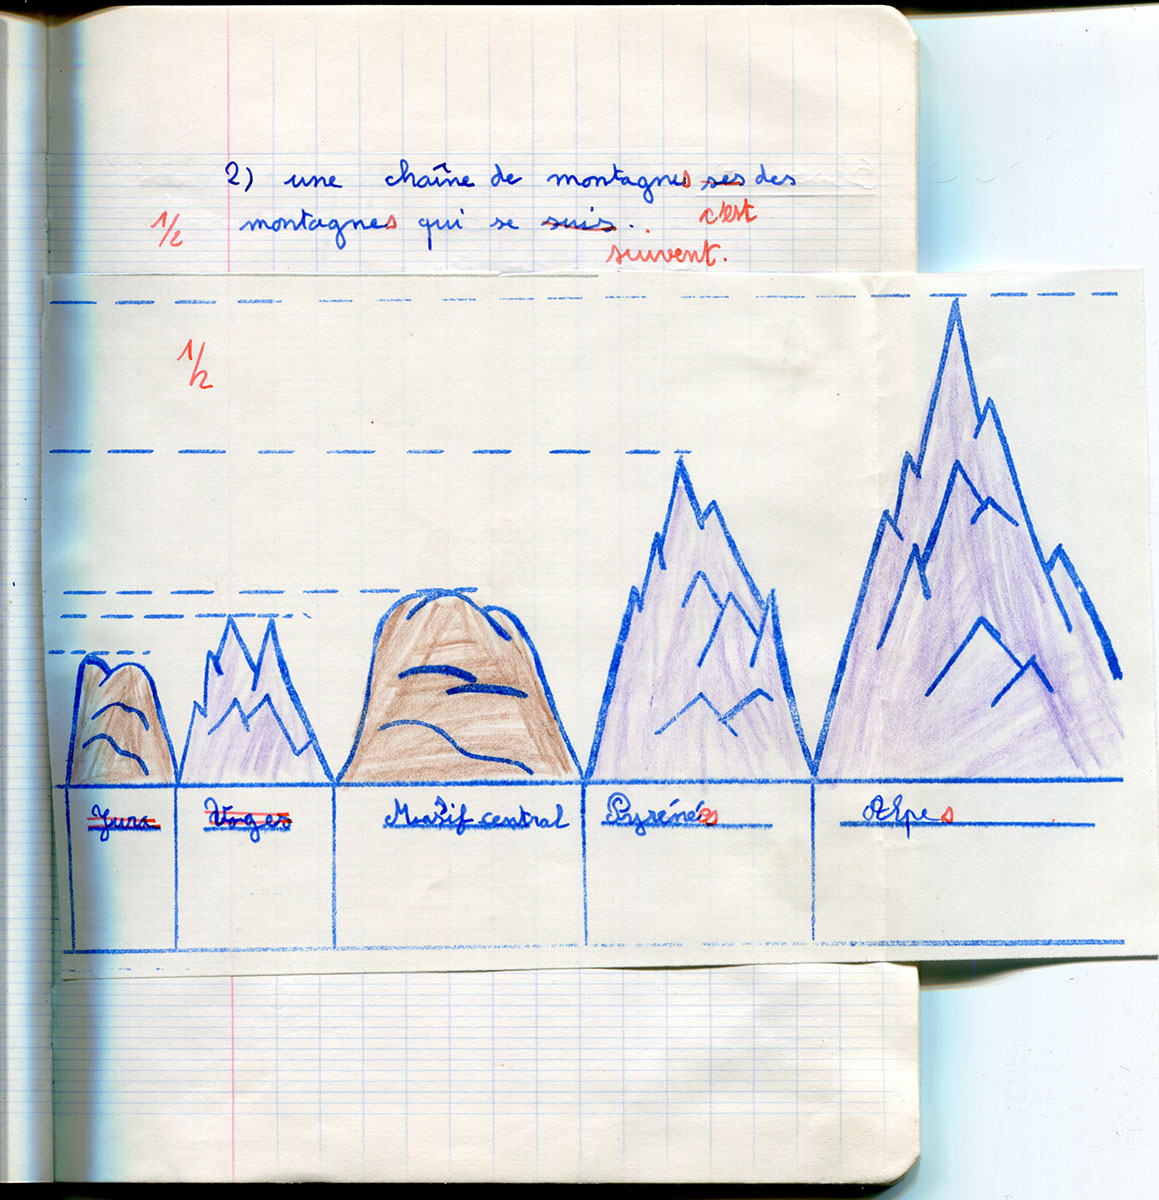 2) une chaîne de montagnes ses des
c'est
1/2 montagnes qui se suis.
suivent.
1/2
Jura Voges Masif central Pyrénées Alpes